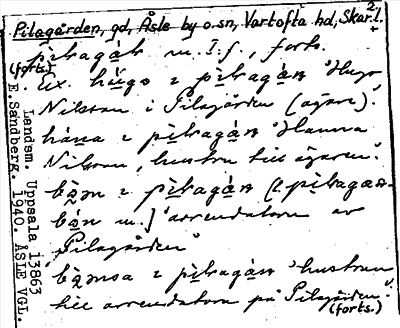 Pilagården, gd, Åsle by o. sn, Vartofta hd, Skar. l.
2.
(forts.) pìlagáḷn m. I. f., forts.
Ex. hùgo i pìlagán "Hugo
Nilsson i Pilagården (ägare)."
hàna i pìlagán "Hanna
Nilsson, hustru till ägaren".
i pìlagán
"arrendatorn av
Pilagården"
i pìlagán "hustrun
till arrendatorn på Pilagården".
(forts.)
Landsm. Uppsala 13863
E. Sandberg. 1940. ÅSLE VGL.